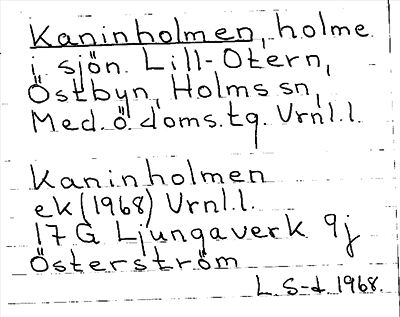 Kaninholmen, holme
i sjön Lill-Otern,
Östbyn, Holms sn,
Med. ö. doms. tg. Vrnl.l.
Kaninholmen
ek (1968) Vrnl.l.
17 G Ljungaverk 9j
Österström
L. S-d 1968.